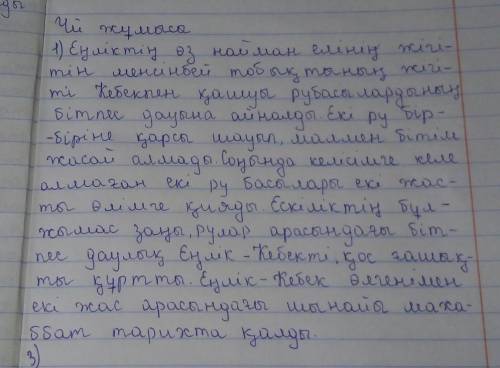 Үй жұмыса
1) Еңліктің өз найман елінің жігі-
тін менсінбей тобықтының жігі-
ті Кебекпен қашуы рубасылардының
бітпес дауына айналды. Екі ру бір-
-біріне қарсы шауып, малмен бітім
жасай алмады. Соңында келісімге келе
алмаған екі ру басылары екі жас-
ты өлімге қияды. Ескіліктің бұл-
жымас заңы, рулар арасындағы біт-
пес даулық Еңлік-Кебекті, қос ғашық-
ты құртты. Еңлік-Кебек өлгенімен
екі жас арасындағы шынайы маха-
ббат тарихта қалды.
3)